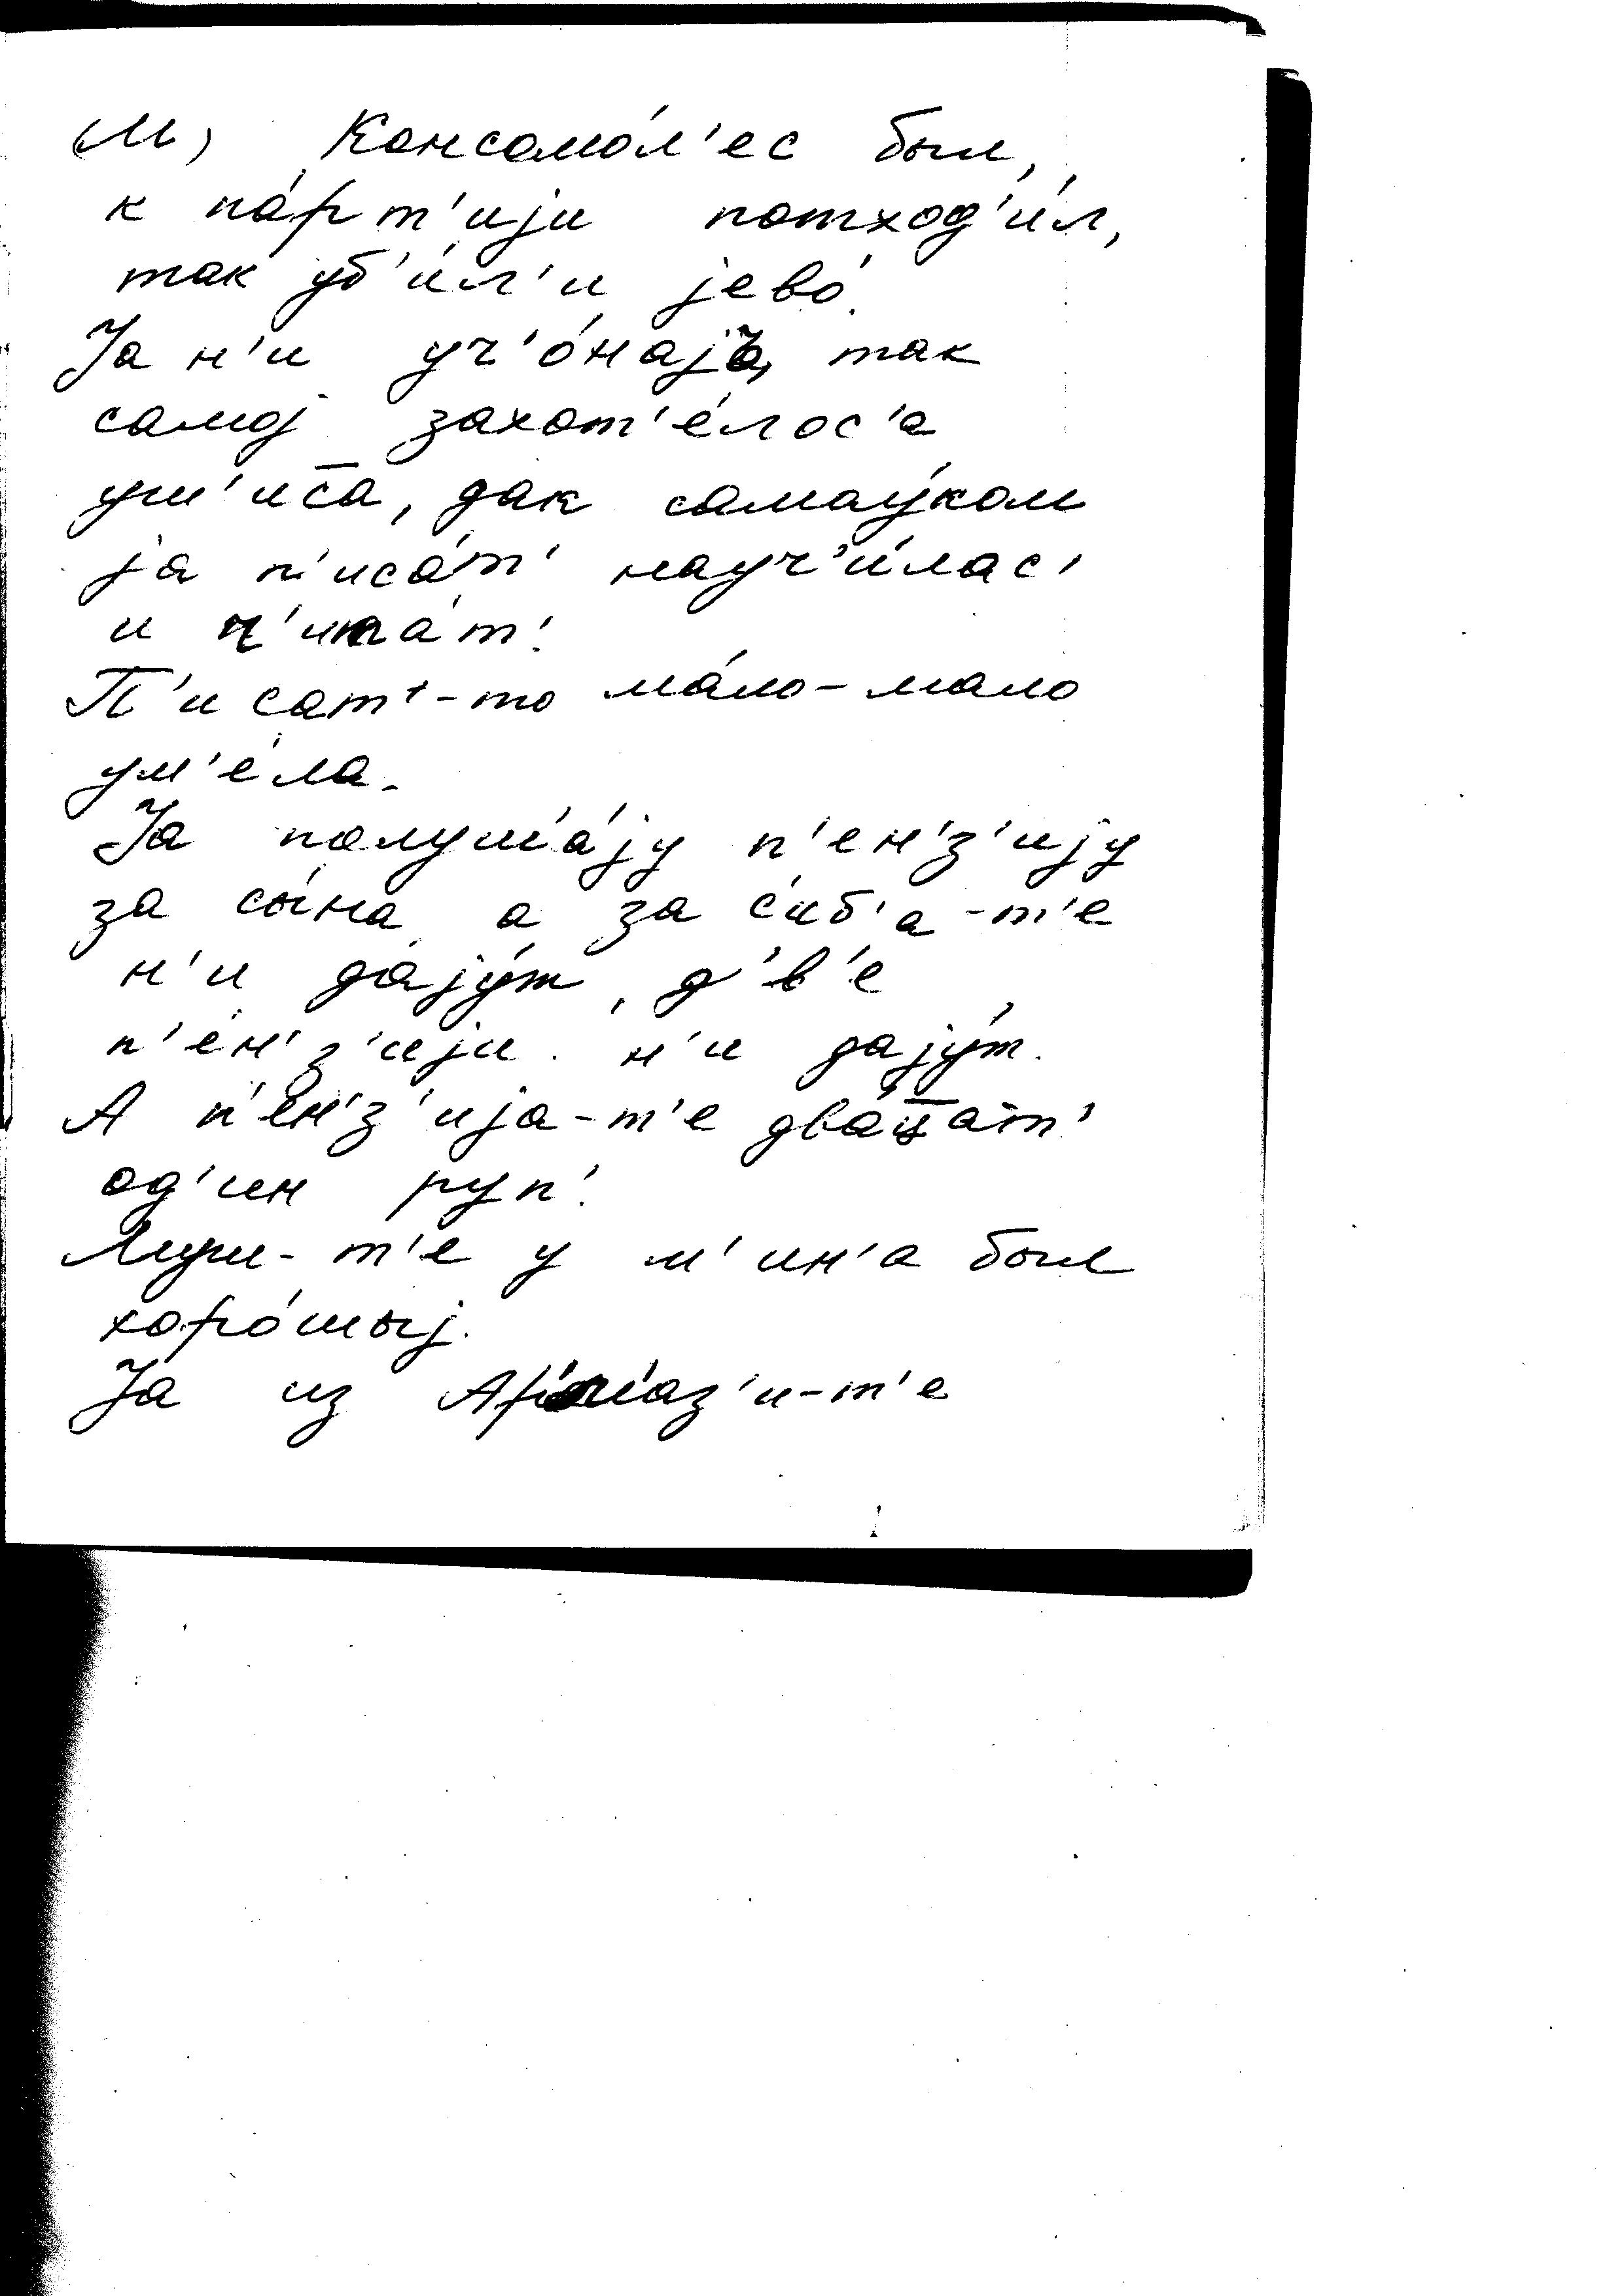 (М) Консомо́л'ес был,
к па́рт'иjи потход'и́л,
так уб'и́л'и jево́.
Jа н'и уч'о́наjъ, так
самоj захот'е́лос'а
уш'ис̄а, дак самау́ком
jа п'иса́т' науч'и́лас'
и ч'ита́т'.
П'исат'-то ма́ло-мало
ум'е́ла.
Jа полуш'а́jу п'ен'з'иjу
за сы́на, а за с'иб'а-т'е
н'и даjу́т, д'в'е
п'е́н'з'иjи н'и даjу́т.
А п'ен'з'иjа-т'е два́ц̄ат'
од'ин руп'.
Муш-т'е у м'ин'а был
хоро́шыj.
Jа из